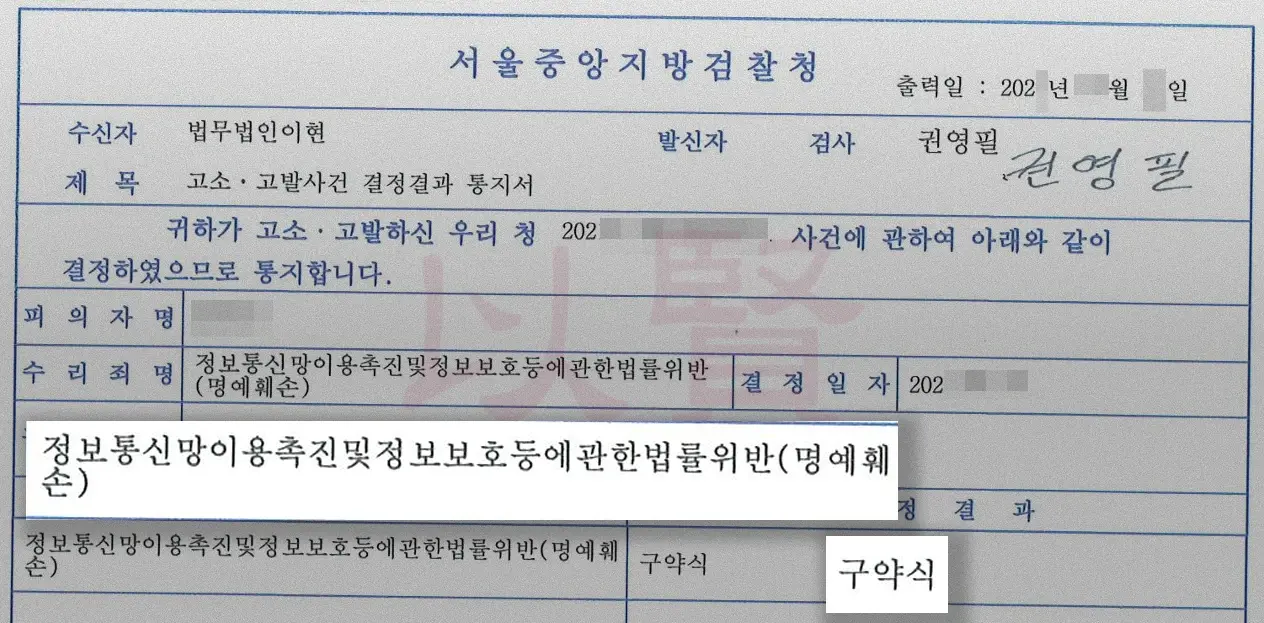 서울중앙지방검찰청
출력일 : 202 년 월 일
수신자 법무법인이현 발신자 검사 권영필 권영필
제 목 고소·고발사건 결정결과 통지서
귀하가 고소·고발하신 우리 청 202 사건에 관하여 아래와 같이
결정하였으므로 통지합니다.
피 의 자 명
수 리 죄 명 정보통신망이용촉진및정보보호등에관한법률위반
(명예훼손) 결 정 일 자 202
以賢
정보통신망이용촉진및정보보호등에관한법률위반(명예훼
손)
정 결 과
정보통신망이용촉진및정보보호등에관한법률위반(명예훼
손) 구약식
구약식